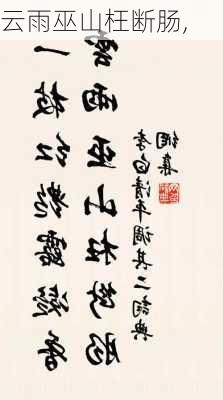 云雨巫山枉断肠,
一枝红艳露凝香
雲雨巫山枉断肠
李白清平调其二词典
網集